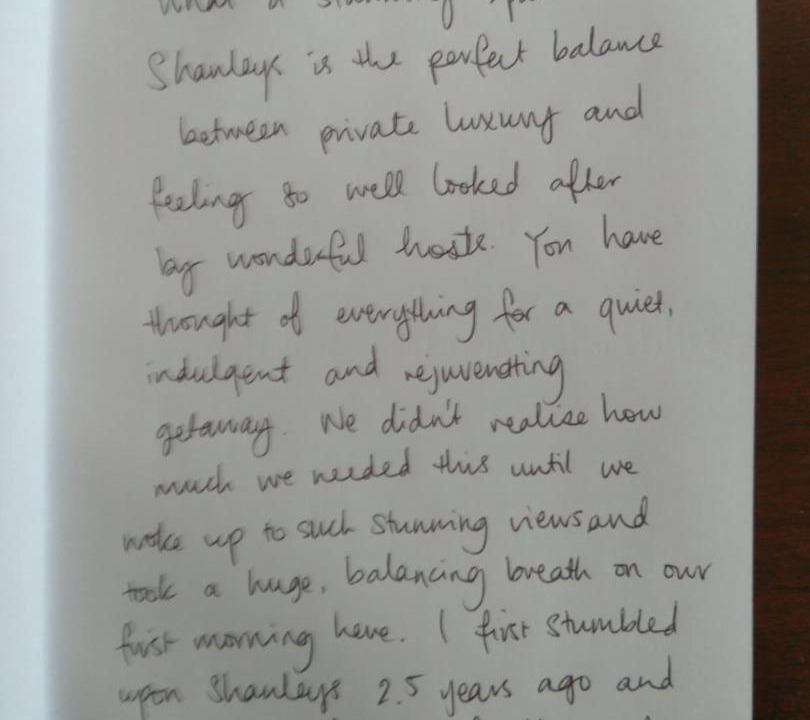 What a stunning
Shanleys is the perfect balance
between private luxury and
feeling so well looked after
by wonderful hosts. You have
thought of everything for a quiet,
indulgent and rejuvenating
getaway. We didn't realise how
much we needed this until we
woke up to such stunning views and
took a huge, balancing breath on our
first morning here. I first stumbled
upon Shanleys 2.5 years ago and